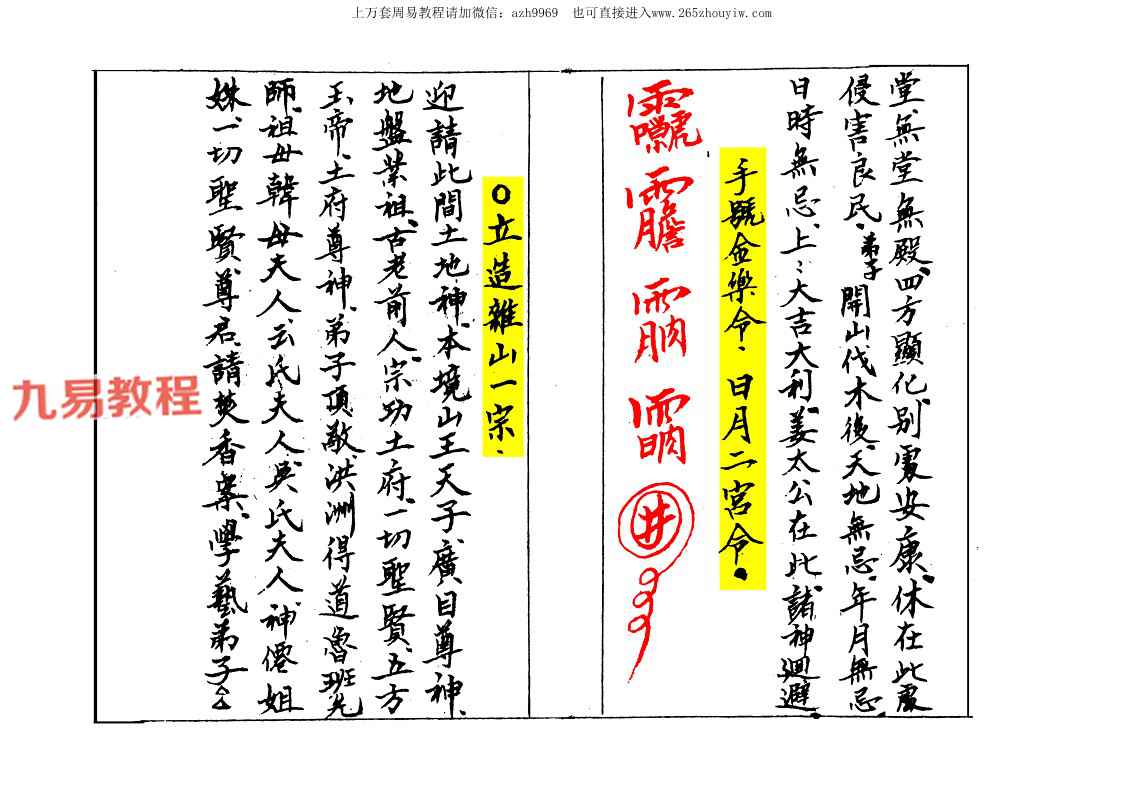 上万套周易教程请加微信：azh9969　也可直接进入www.265zhouyiw.com
堂、無堂無殿、四方顯化、別處安康、休在此處
侵害良民、弟子開山伐木後、天地無忌、年月無忌、
日時無忌、上：大吉大利、姜太公在此、諸神迴避、
手號金樂令：日月二宮令。
井
○立造雜山一宗：
迎請此間土地神、本境山王天子、廣目尊神、
地盤業祖、古老前人、宗功土府、一切聖賢、五方
玉帝、土府尊神、弟子頂敬、洪洲得道魯班先
師、祖母韓母夫人、云氏夫人、吳氏夫人、神僊姐
妹、一切聖賢、尊君、請焚香案、學藝弟子△
九易教程